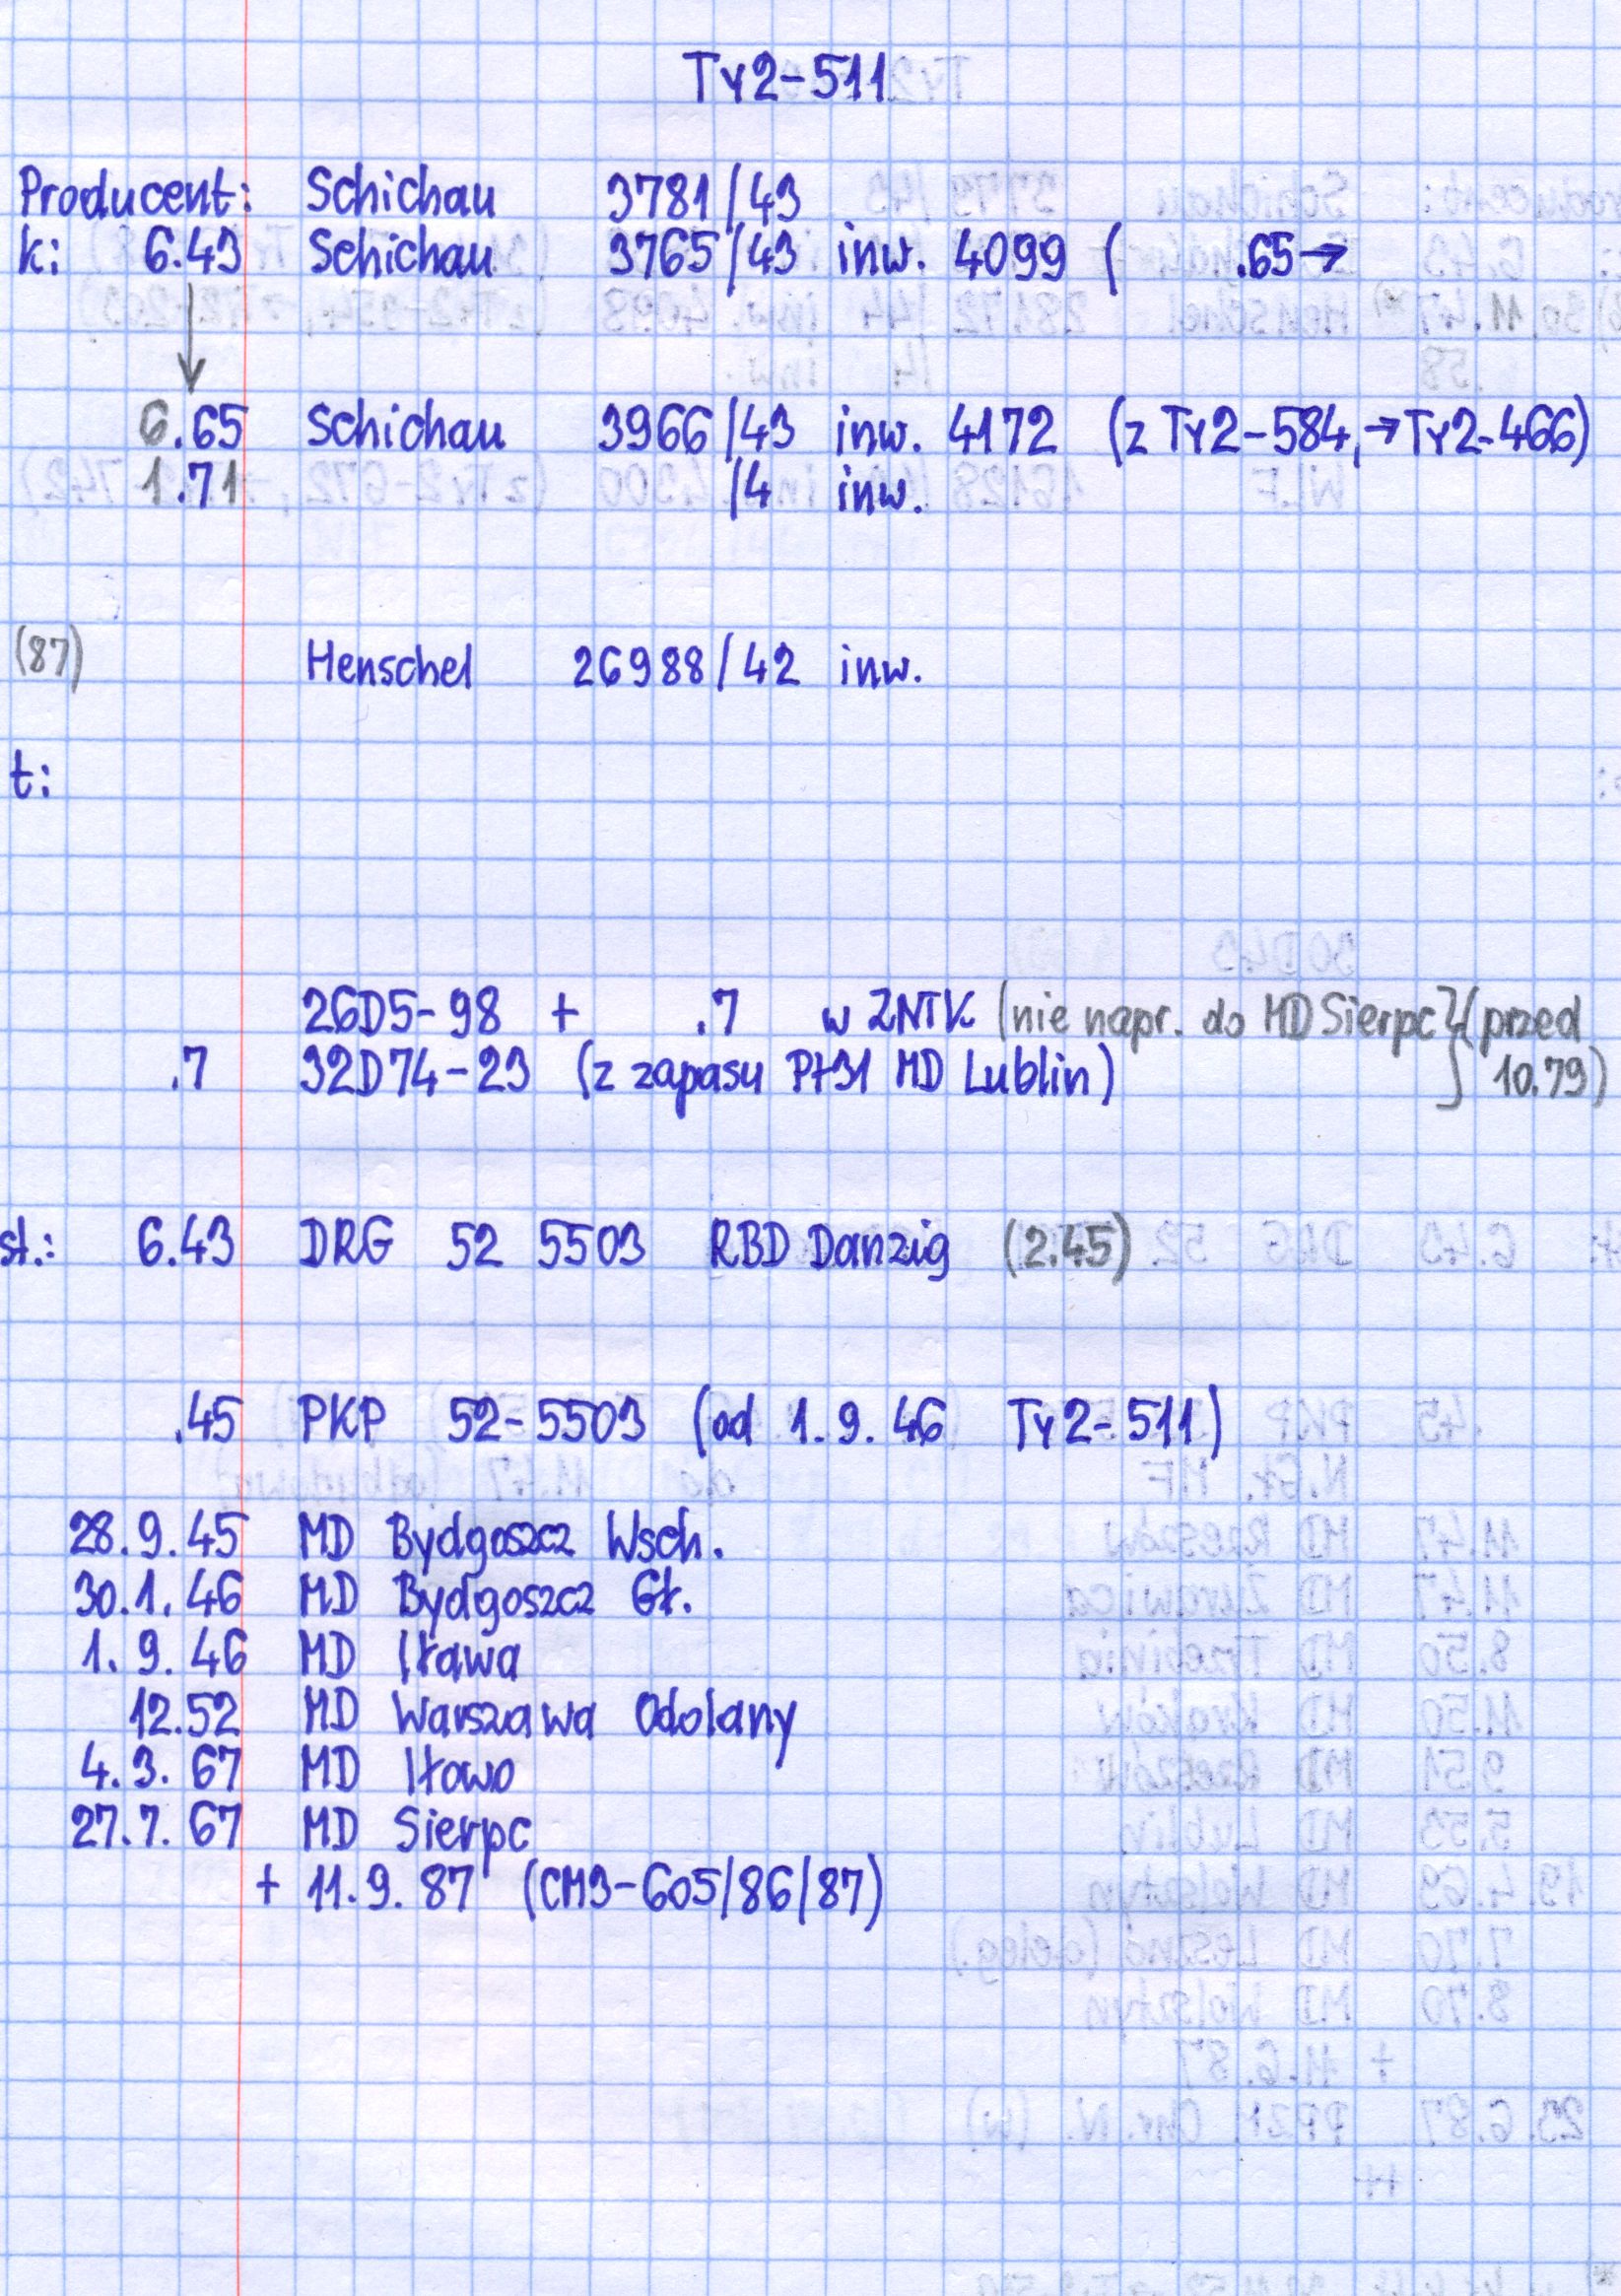 Ty2-511
Producent: Schichau 3781/43
k: 6.43 Schichau 3765/43 inw. 4099 ( .65→
6.65 Schichau 3966/43 inw. 4172 (z Ty2-584,→Ty2-466)
1.71 /4 inw.
(87) Henschel 26988/42 inw.
t:
26D5-98 + .7 w ZNTK (nie napr. do MD Sierpc?) (przed
.7 32D74-23 (z zapasu Pt31 MD Lublin) 10.79)
st.: 6.43 DRG 52 5503 RBD Danzig (2.45)
.45 PKP 52-5503 (od 1.9.46 Ty2-511)
28.9.45 MD Bydgoszcz Wsch.
30.1.46 MD Bydgoszcz Gł.
1.9.46 MD Iława
12.52 MD Warszawa Odolany
4.3.67 MD Iłowo
27.7.67 MD Sierpc
+ 11.9.87 (CM3-605/86/87)